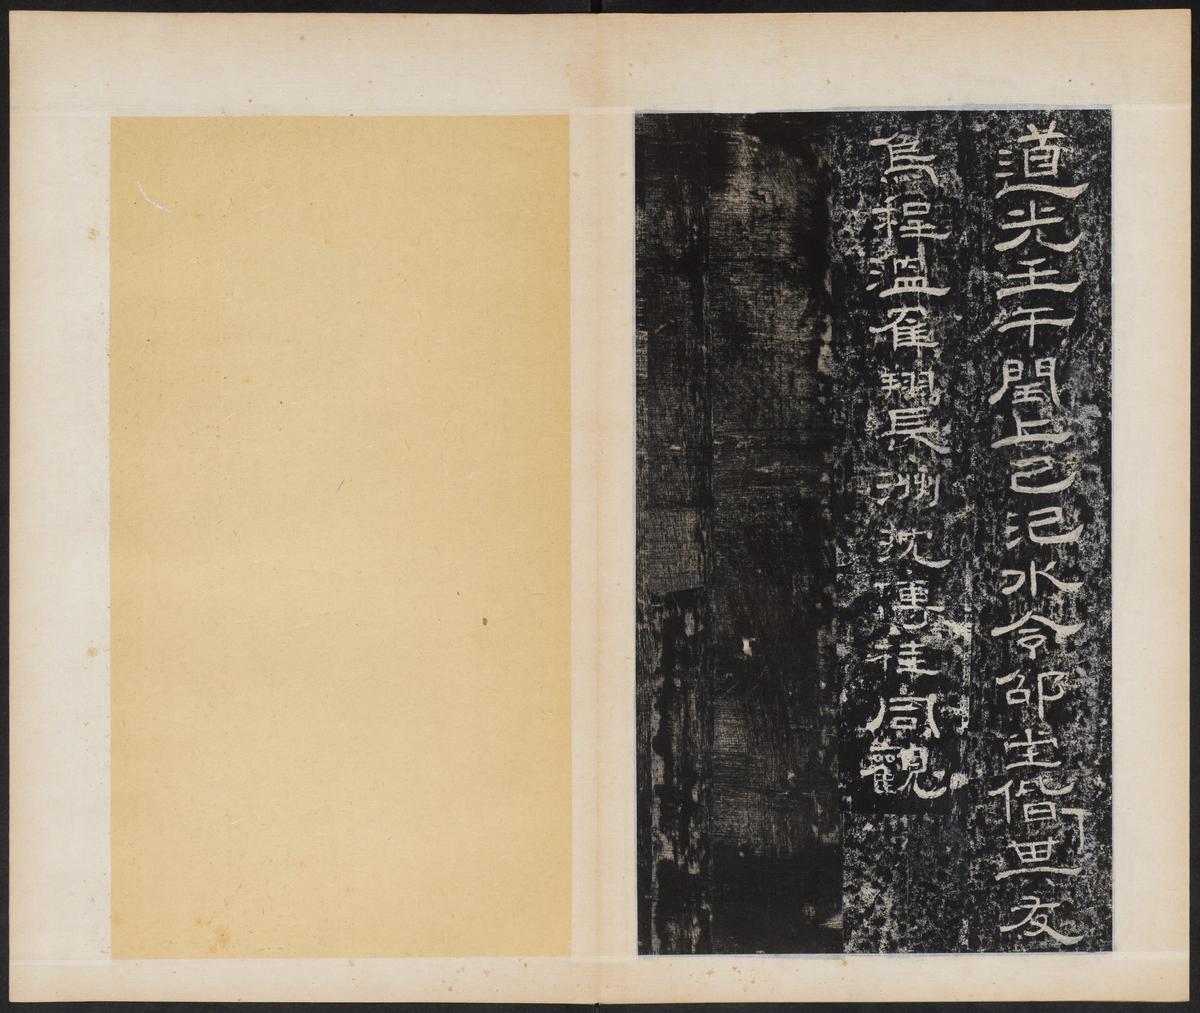 道光壬午閏上巳汜水令邵堂偕其友
烏程溫隺翔長洲沈傳桂同觀